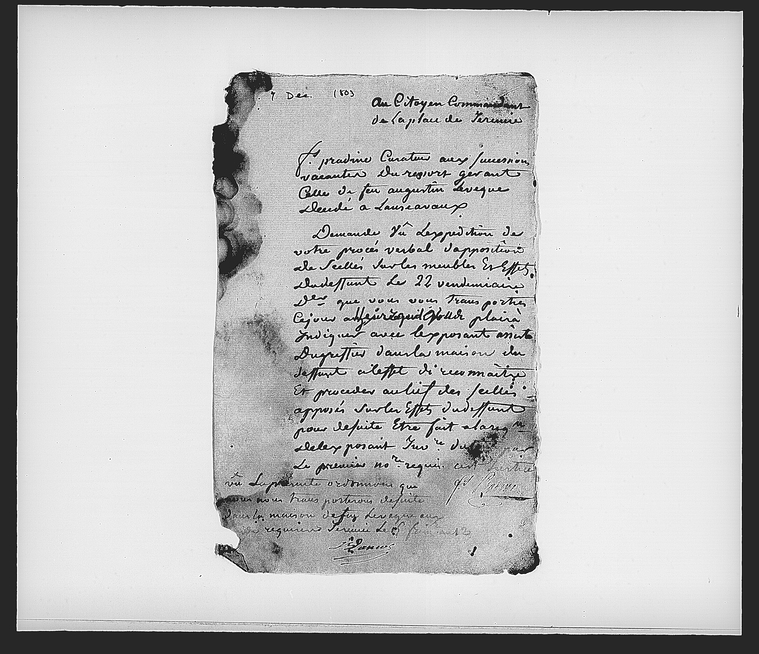 7 Dec. 1803
Au Citoyen Commandant
de La place de Jeremie
fs. pradine Curateur aux successions
vacantes du ressort gerant
Celle de feu augustin Leveque
Decedé a
Demande Vû Lexpedition de
votre procés verbal dapposition
de Scellés Sur les meubles Et Effets
dudeffunt Le 22 vendemiaire
Der que vous vous transportiés
Cejour a quil vous plaira
Indiquer avec lexposant assisté
Dugreffier dans la maison du
deffunt aleffet de reconnaitre
Et proceder au lief des Scellés
apposés Sur les Effets dudeffunt
pour desuite Etre fait
delexposant Inv.re du par
Le premier no.re requis cest justice
vu La presente ordonnons que
nous nous transporterons desuite
dans la maison de feu Leveque aux
requises Jeremie Le frim an 12